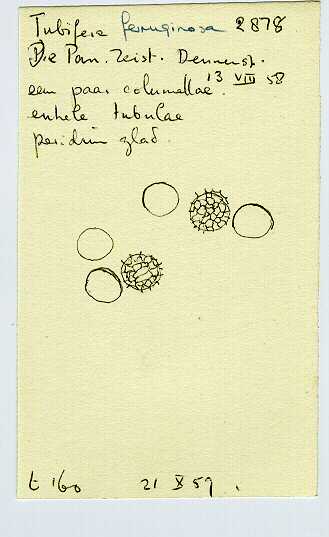 Tubifera ferruginosa 2878
Zeist. Dennenst.
een paar columellae. 13 VIII 58
enkele tubulae
peridium glad.
t 160 21 X 59.